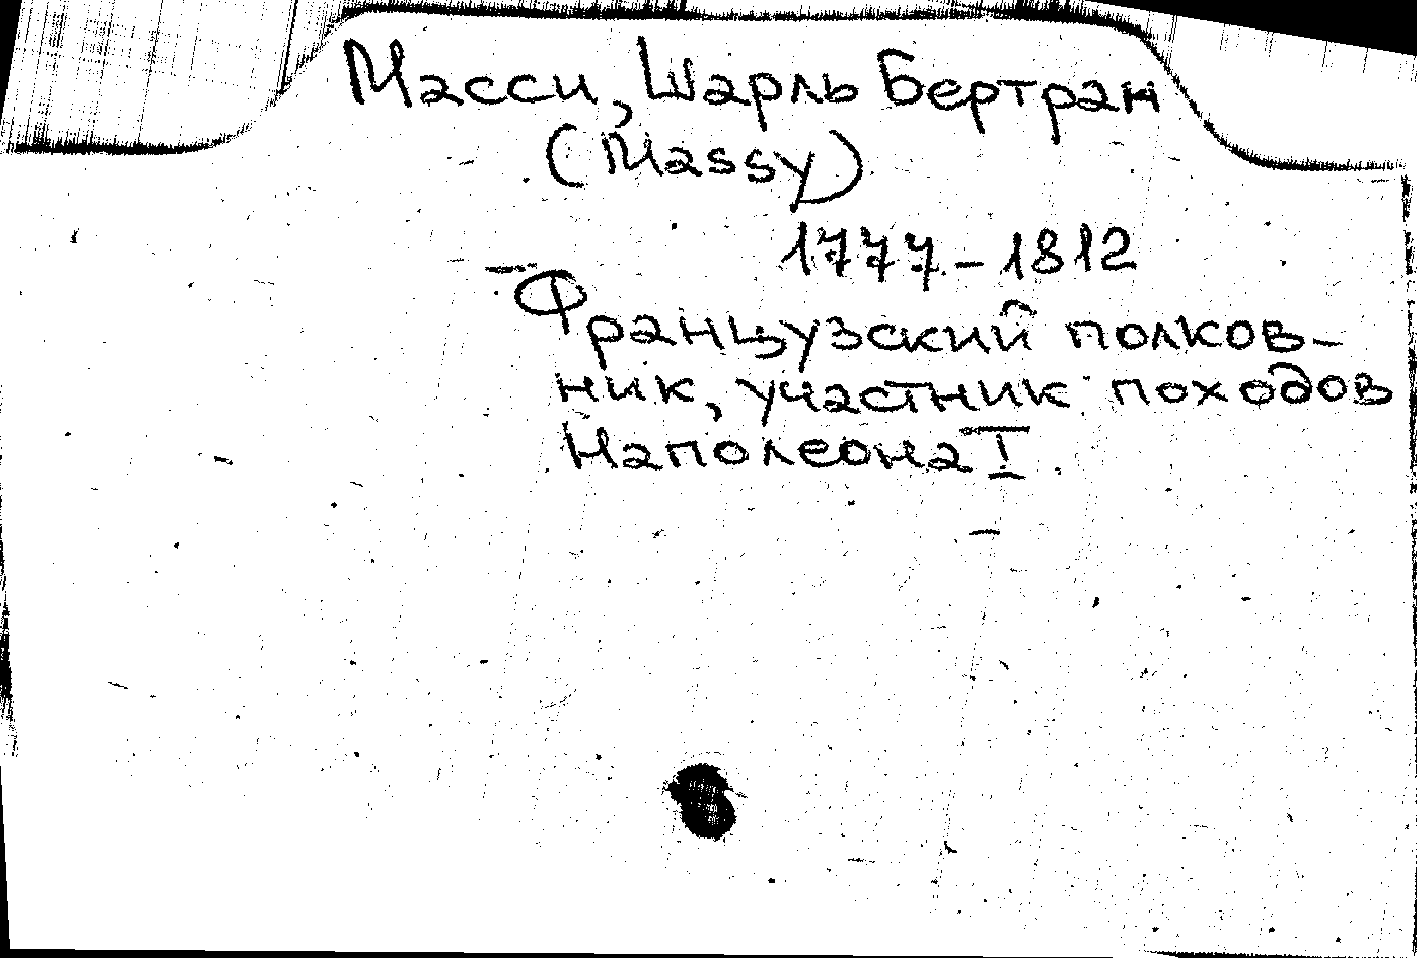 Масси, Шарль Бертран
(Massy)
1777-1812
Французский полков-
ник, участник походов
Наполеона I.